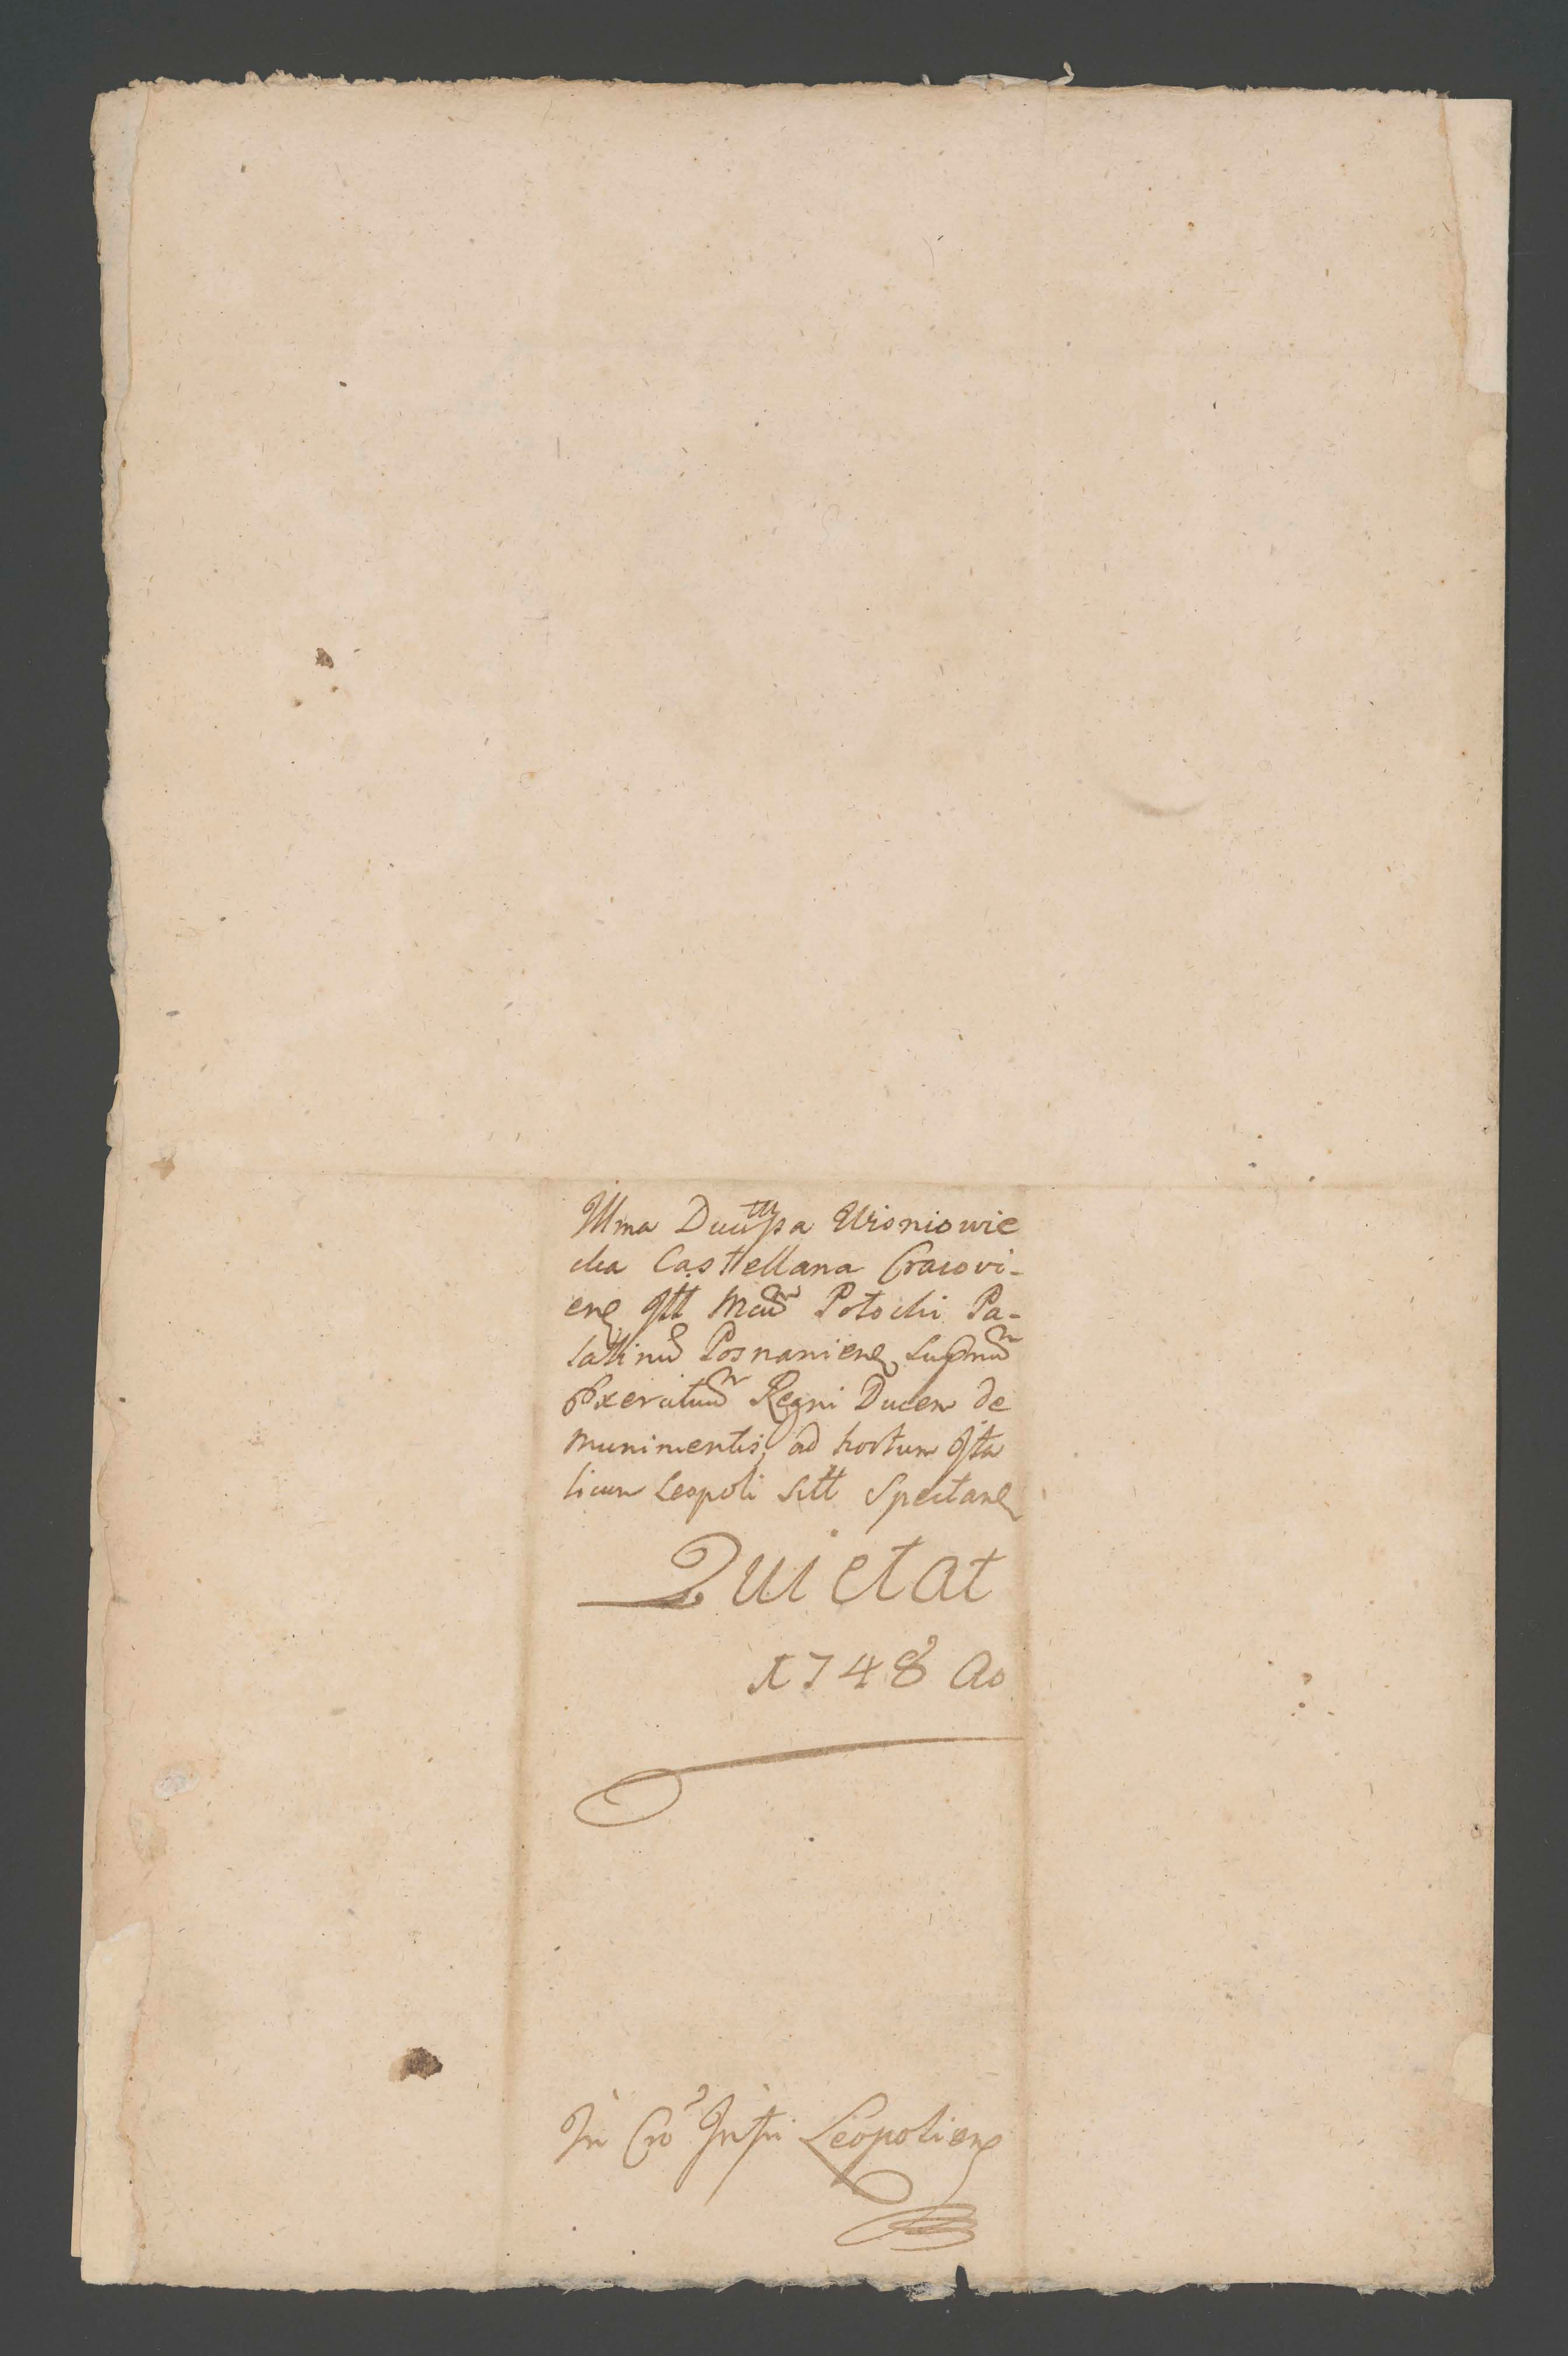 Illma Ducissa Wisniowie
cka Castellana Cracovi-
ens Illm Mcum Potocki Pa-
latinum Posnaniens Supmum
Exercituum Regni Ducem de
munimentis, ad hortum Ita
licum Leopoli sitt Spectans
Quietat
1748 Ao
In Cro Leopoliens